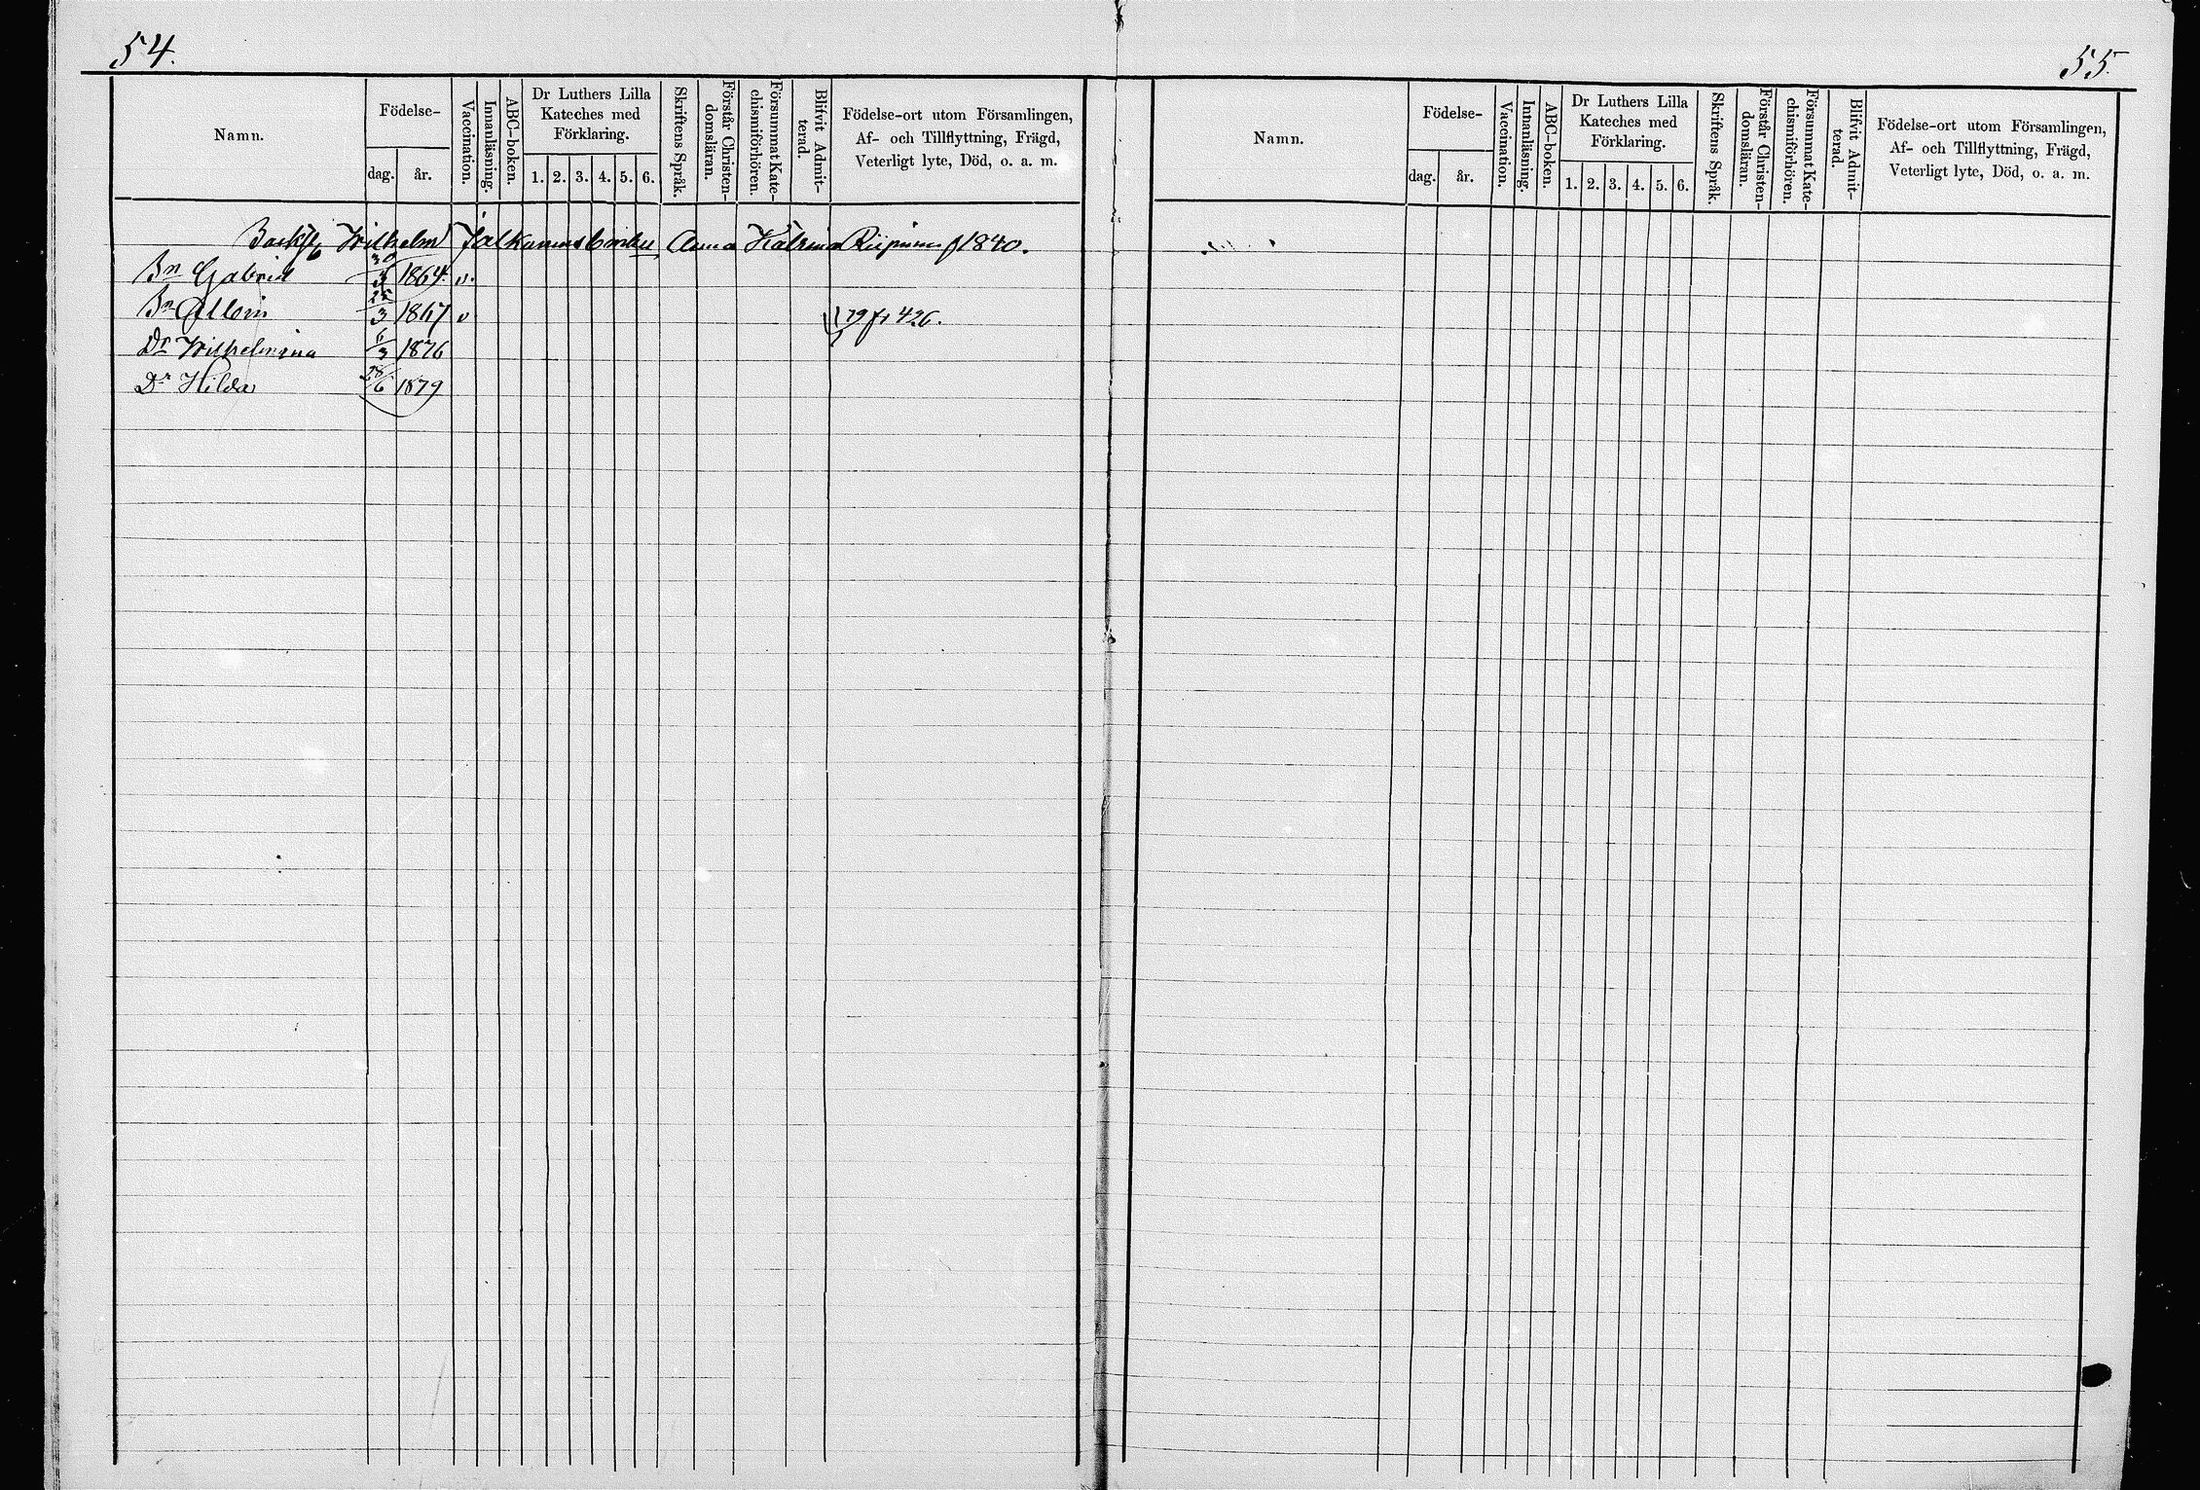 54.
Namn.
Födelse-
dag.
år.
Vaccination.
Innanläsning.
ABC-boken.
Dr Luthers Lilla
Kateches med
Förklaring.
1. 2. 3. 4. 5. 6.
Skriftens Språk.
Förstår Christen-
domsläran.
Försummat Kate-
chismiförhören.
Blifvit Admit-
terad.
Födelse-ort utom Församlingen,
Af- och Tillflyttning, Frägd,
Veterligt lyte, Död, o. a. m.
Wilhelm Anna Katrina f 1840.
Bn Gabriel 1864 v.
Bn 25/3 1867 v
79 fr 426.
Dr Wilhelmina 6/3 1876
Dr Hilda 28/6 1879
55.
Namn.
Födelse-
dag.
år.
Vaccination.
Innanläsning.
ABC-boken.
Dr Luthers Lilla
Kateches med
Förklaring.
1. 2. 3. 4. 5. 6.
Skriftens Språk.
Förstår Christen-
domsläran.
Försummat Kate-
chismiförhören.
Blifvit Admit-
terad.
Födelse-ort utom Församlingen,
Af- och Tillflyttning, Frägd,
Veterligt lyte, Död, o. a. m.